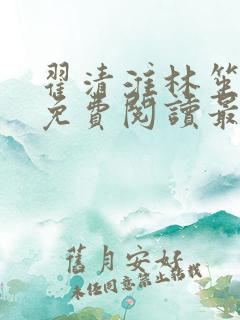 翟清淮林笙
免費閱讀最
舊月安好
未經同意禁止轉載